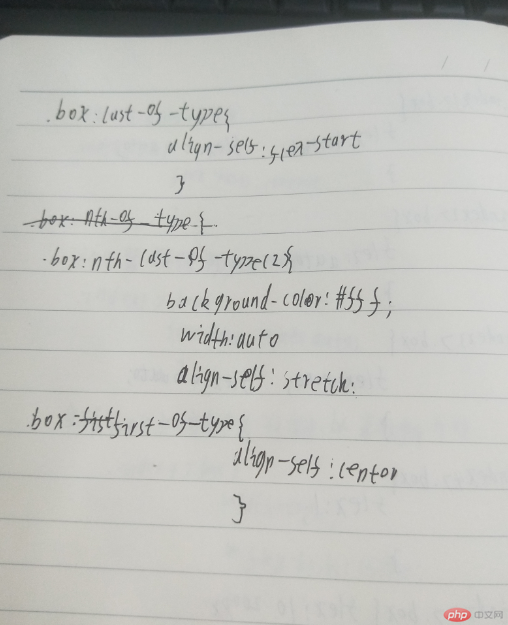 .box:last-of-type{
align-self:flex-start
}
.box:nth-of-type{
.box:nth-last-of-type(2){
background-color:#fff;
width:auto
align-self:stretch;
.box:fistfirst-of-type{
align-self:centor
}
php 中文网